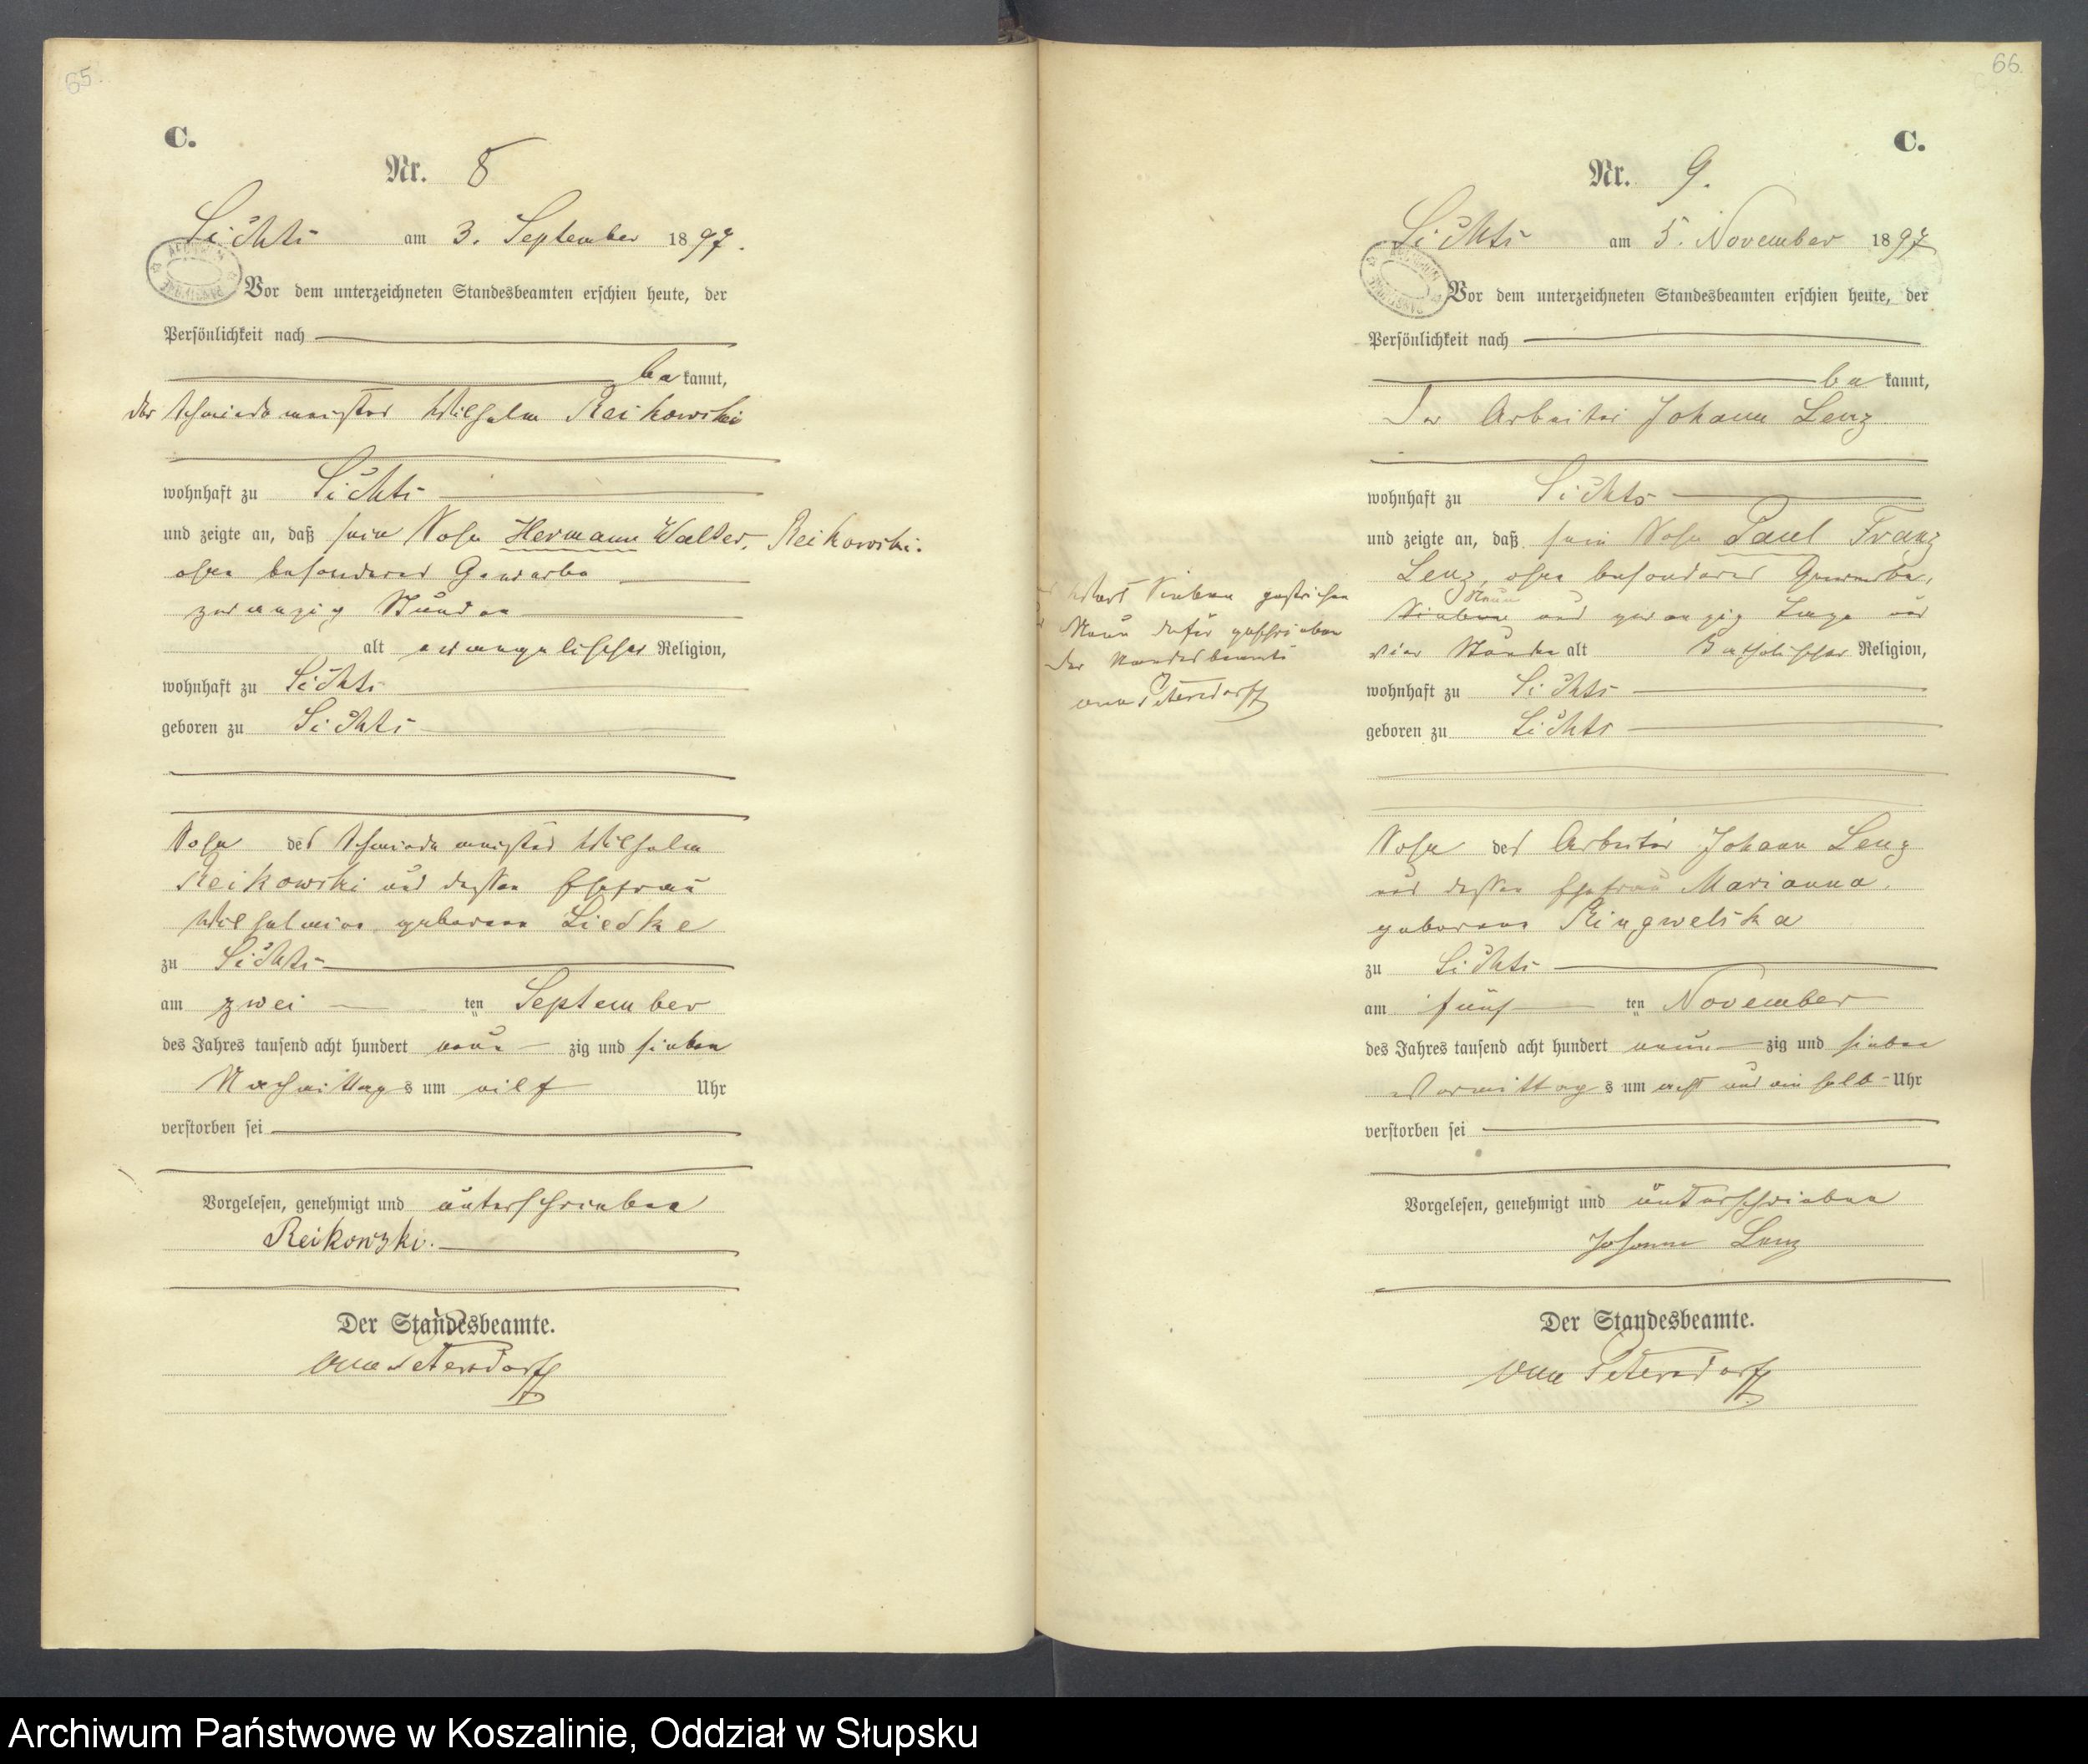 65.
C.
Nr. 8
Lichts am 3. September 1897.
Vor dem unterzeichneten Standesbeamten erschien heute, der
Persönlichkeit nach
be kannt,
der Schmiedemeister Wilhelm Reikowski
wohnhaft zu
und zeigte an, daß sein Sohn Hermann Walter, Reikowski.
ohne besonderes Gewerbe
zwanzig Stunden
alt evangelischer Religion,
wohnhaft zu
geboren zu
Sohn des Schmiedemeister Wilhelm
Reikowski und dessen Ehefrau
Wilhelmine geborene Liedke
zu
am zwei ten September
des Jahres tausend acht hundert neun zig und sieben
Nachmittags um eilf Uhr
verstorben sei
Vorgelesen, genehmigt und unterschrieben
Reikowski.
Der Standesbeamte.
von Petersdorff
66.
C.
Nr. 9.
am 5. November 1897
Vor dem unterzeichneten Standesbeamten erschien heute, der
Persönlichkeit nach
be kannt,
Der Arbeiter Johann Lenz
wohnhaft zu
und zeigte an, daß sein Sohn Paul Franz
Lenz, ohne besonderes Gewerbe,
Neun
Sieben und zwanzig Tage und
vier Stunden alt Katholischer Religion,
wohnhaft zu
geboren zu
Wort Sieben gestrichen
Neun dafür geschrieben
Der Standesbeamte
von Petersdorff
Sohn des Arbeiter Johann Lenz
und dessen Ehefrau Marianna
geborene Ringwelska
zu
am fünf ten November
des Jahres tausend acht hundert neun zig und sieben
Vormittags um acht und ein halb Uhr
verstorben sei
Vorgelesen, genehmigt und unterschrieben
Johann Lenz
Der Standesbeamte.
von Petersdorff
Archiwum Państwowe w Koszalinie, Oddział w Słupsku